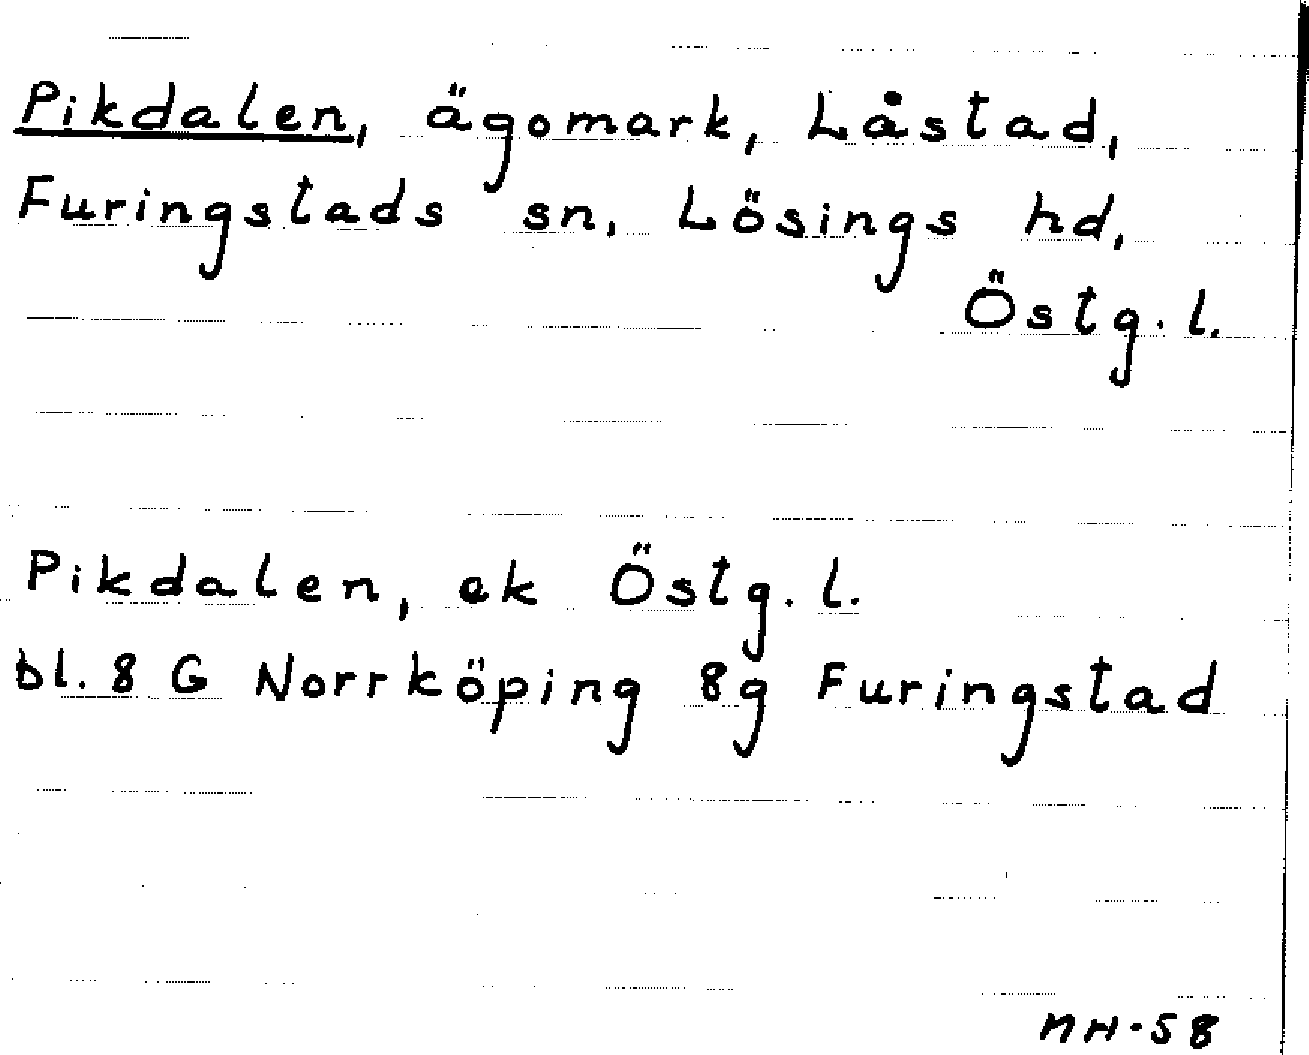 Pikdalen, ägomark, Låstad,
Furingstads sn, Lösings hd,
Östg. l.
Pikdalen, ek Östg. l.
bl. 8 G Norrköping 8g Furingstad
NH-58